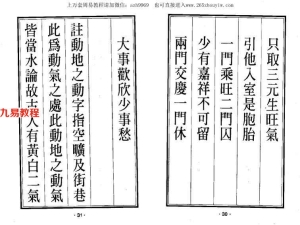 也可直接进入
只取三元生旺氣
引他入室是胞胎
一門乘旺二門囚
少有嘉祥不可留
兩門交慶一門休
· 30 ·
大事歡欣少事愁
註動地之動字指空曠及街巷
此爲動氣之處此動地之動氣
皆當水論故古人有黃白二氣
· 31 ·
九易教程